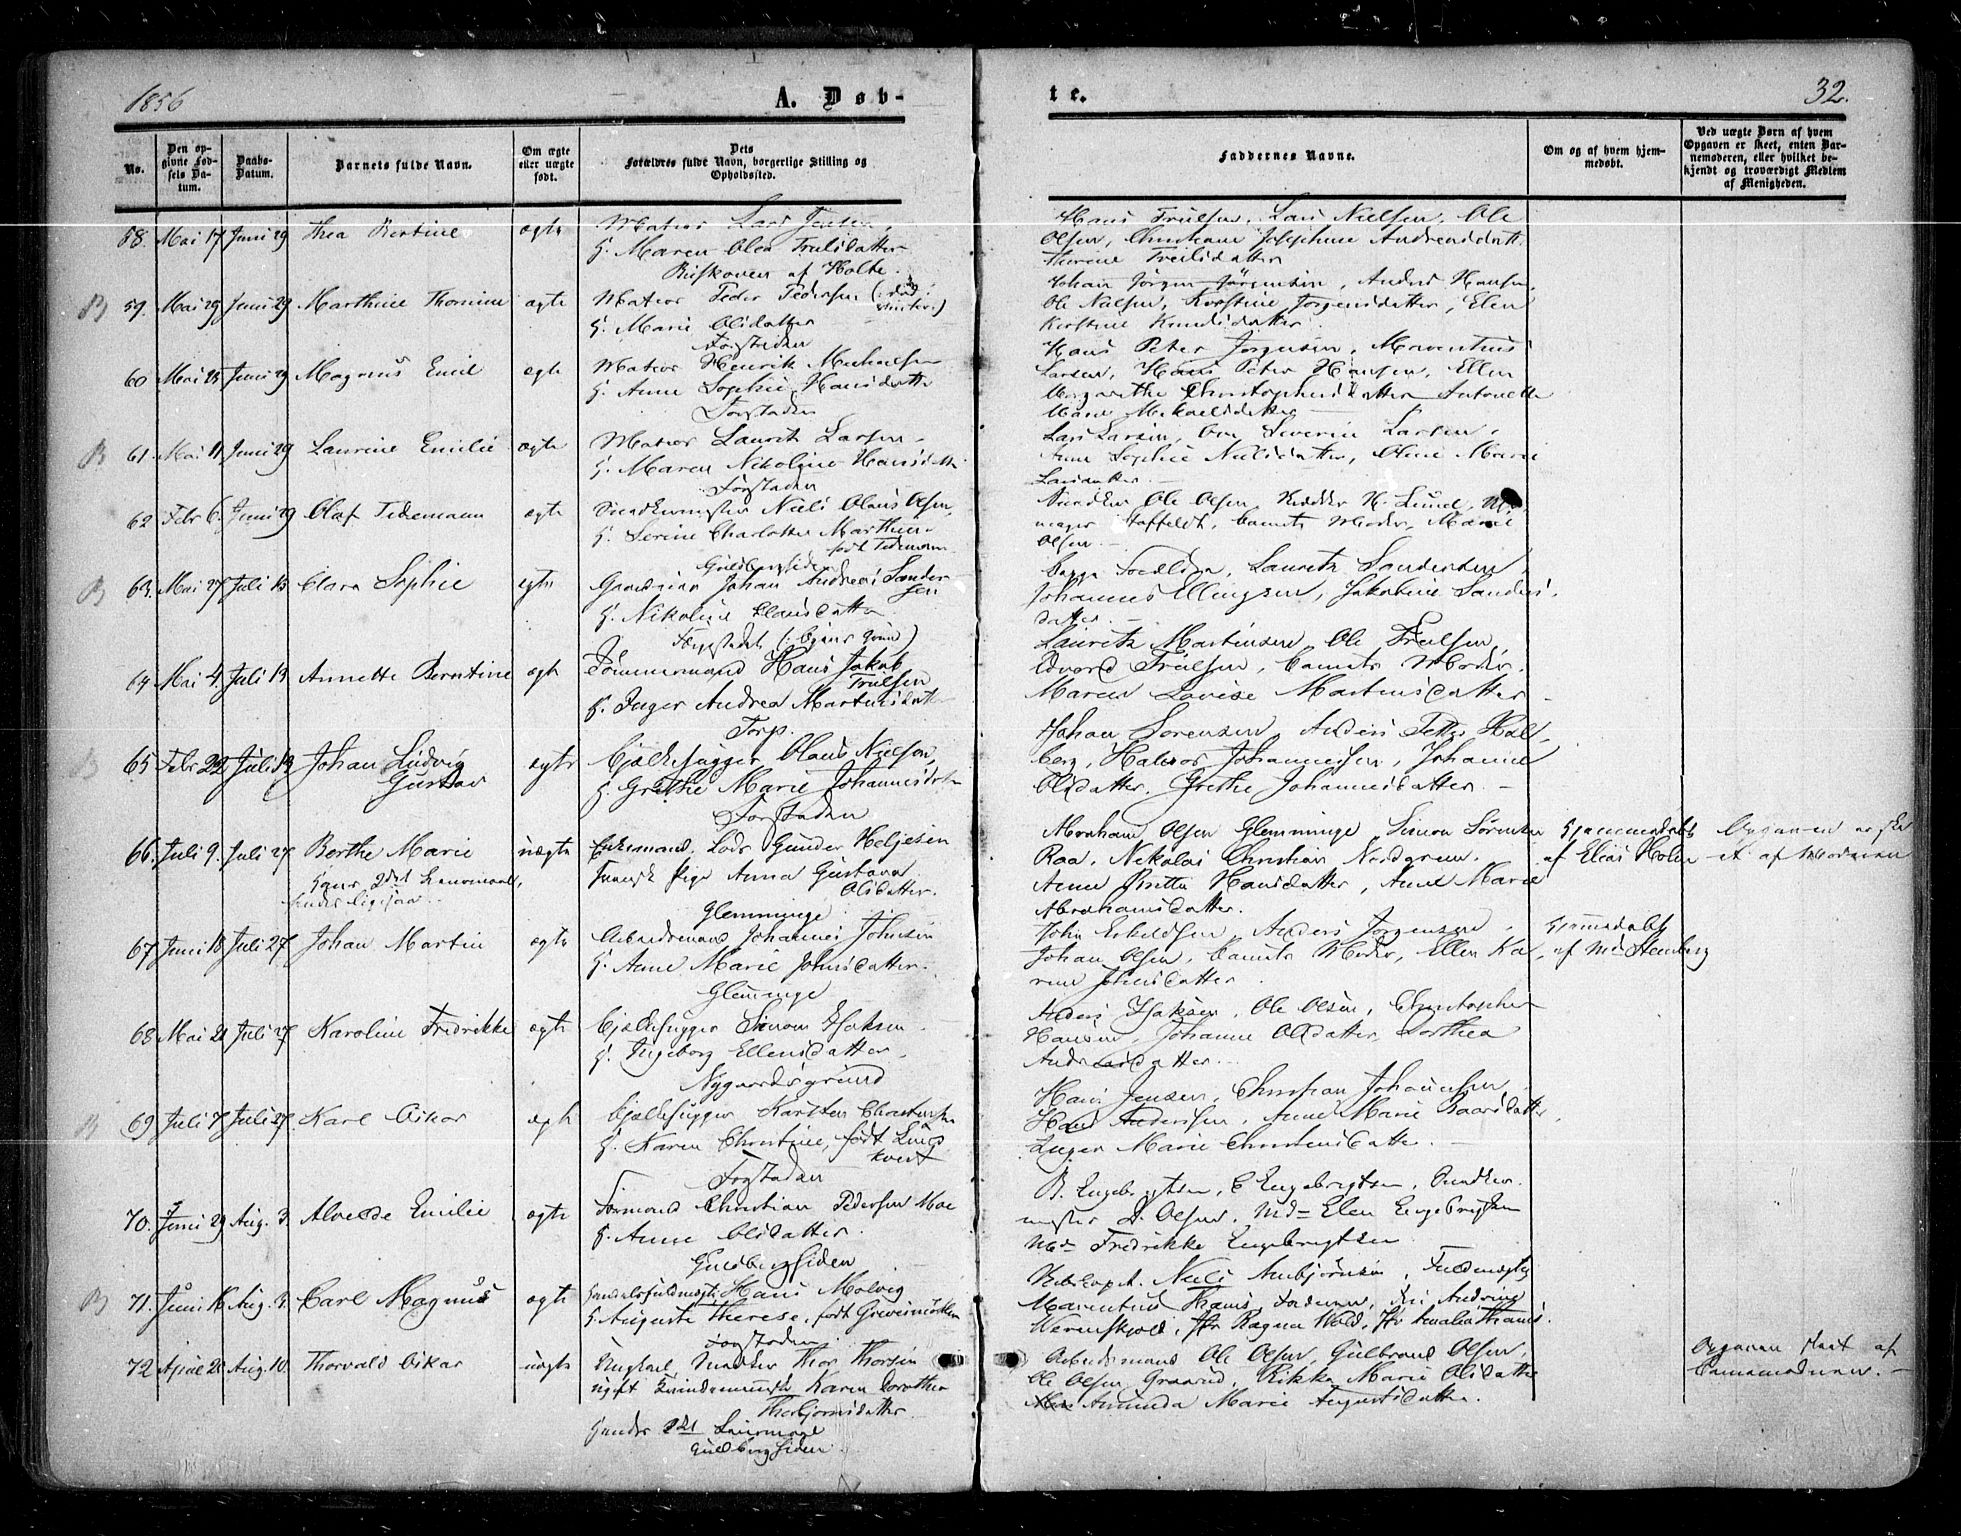 1856
A. Døb-
te.
32.
No.
Den op-
givne Fød-
sels Da-
tum.
Daabs-
Datum.
Barnets fulde Navn.
Om ægte
eller uægte
født.
Dets
Forældres fulde Navn, borgerlige Stilling og
Opholdssted.
Faddernes Navne.
Om og af hvem hjem-
medøbt.
Ved uægte Børn af hvem
Opgaven er skeet, enten Bar-
nemoderen, eller hvilket be-
kjendt og troværdigt Medlem
af Menigheden.
58. Mai 17 Juni 29 Thea Bertine ægte Matros Lars Jensen,
H. Maren Olea Trulsdatter
af Holte.
Hans Trulsen, Lars Nielsen, Ole
Olsen, Christiane Josephine Andreasdatt.
B 59. Mai 29 Juni 29 Marthine Thomine ægte Matros Peder Pedersen
H. Marie Olsdatter
Forstaden
Johan Jørgen Jørgensen, Anders Hansen,
Ole Nielsen, Kirstine Jørgensdatter, Elen
Kirstine Knudsdatter
60 Mai 25 Juni 29 Magnus Emil ægte Matros Henrik Michaelsen
H. Anne Sophie Hansdatter
Forstaden
Hans Peter Jørgensen, Marentius
Larsen, Hans Peter Hansen, Ellen
Margrethe Christophersdatter Antonette
Marie
B 61. Mai 11 Juni 29 Laurine Emilie ægte Matros Lauritz Larsen
H. Maren Nikoline Hansdtr
Forstaden
Lars Larsen, Severin Larsen,
Anne Sophie Nielsdatter, Oline Marie
Larsdatter
62 Febr 6. Juni 29 Olaf Tidemann ægte Snedkermester Niels Olaus Olsen,
H. Serine Charlotte Marthine
født Tidemann
Guldbergsiden
Snedker Ole Olsen, H. Lund,
Staffeldt, Barnets Moder, Marie
Olsen
B 63. Mai 27 Juli 13 Clara Sophie ægte Gaardeier Johan Andreas Sander-
sen
H. Nikoline Olausdatter
Lauritz Sandersen,
Johannes Ellingsen, Jakobine Sanders-
datter
64 Mai 4 Juli 13 Annette Berntine ægte Tømmermand Hans Jakob
Trulsen
H. Inger Andrea Martinsdatter
Torp.
Lauritz Martinsen, Ole Trulsen,
Edvard Trulsen, Barnets Moder,
Maren Lovise Martinsdatter
B 65 Febr 22 Juli 13 Johan Ludvig
Gustav
ægte Bjælkehugger Olaus Nielsen,
H. Grethe Marie Johannesdatter
Forstaden
Johan Sørensen, Anders Petter Hol-
berg, Halvor Johannessen, Johanne
Olsdatter, Grethe Johannesdatter.
66. Juli 9. Juli 27 Berthe Marie uægte Enkemand, Lods Gunder Heljesen
Pige Anna Gustava
Olsdatter.
Glemminge
Hans 2det Leiermaal,
hendes ligesaa.
Abraham Olsen Glemminge, Simon Sørensen
Raa, Nikolai Christian Nordgreen,
Anne Britta Hansdatter, Anne Marie
Abrahamsdatter.
Hjemmedøbt
af Elias Holm
Opgaven er ske-
et af Moderen
67 Juni 18 Juli 27 Johan Martin ægte Arbeidsmand Johannes Johnsen
H. Anne Marie Johnsdatter.
Glemminge
John Eskildsen, Anders Jørgensen,
Johan Olsen, Barnets Moder, Ellen Ka-
rine Johnsdatter.
Hjemmedøbt
af Md Stenberg
68 Mai 21 Juli 27 Karoline Fredrikke ægte Bjælkehugger Simon Isaksen
H. Ingeborg Ellensdatter,
Nygaardsgrund
Anders Isaksen, Ole Olsen, Christopher
Hansen, Johanne Olsdatter, Dorthea
Andreasdatter.
B 69 Juli 7 Juli 27 Karl Oskar ægte Bjælkehugger Karsten Christensen
H. Karen Christine, født Linds-
kvert
Forstaden
Hans Jensen, Christian Johannesen
Hans Andersen, Anne Marie Baarsdatter,
Inger Marie Christensdatter.
70. Juni 29 Aug. 3. Alvilde Emilie ægte Formand Christian Pedersen Moe
H. Anne Olsdatter.
Guldbergsiden
B. Engebrigtsen, C. Engebrigtsen, Snedker-
mester D. Olsen, Md= Elen Engebrigtsen
Md= Fredrikke Engebrigtsen
B 71. Juni 16 Aug. 3. Carl Magnus ægte Handelsfuldmægt. Hans Molvig
H. Auguste Therese, født Grevesmøhlen
Forstaden
Niels Anbjørnsen, Fuldmægtig
Marentius Thams, Andrine
Werenskjold, Jfr Ragna Wold, Jfr Amalia Thams.
72 April 21 Aug. 10. Thorvald Oskar uægte Ungkarl Snedker Thor Thorsen
ugift Fruentimmer Karen Dorothea
Thorbjørnsdatter
Hendes 2det Leiermaal
Guldbergsiden
Arbeidsmand Ole Olsen, Gulbrand Olsen,
Ole Olsen Graarud, Rikka Marie Olsdatter
Amunda Marie Augustsdatter.
Opgaven skeet af
Barnemoderen.